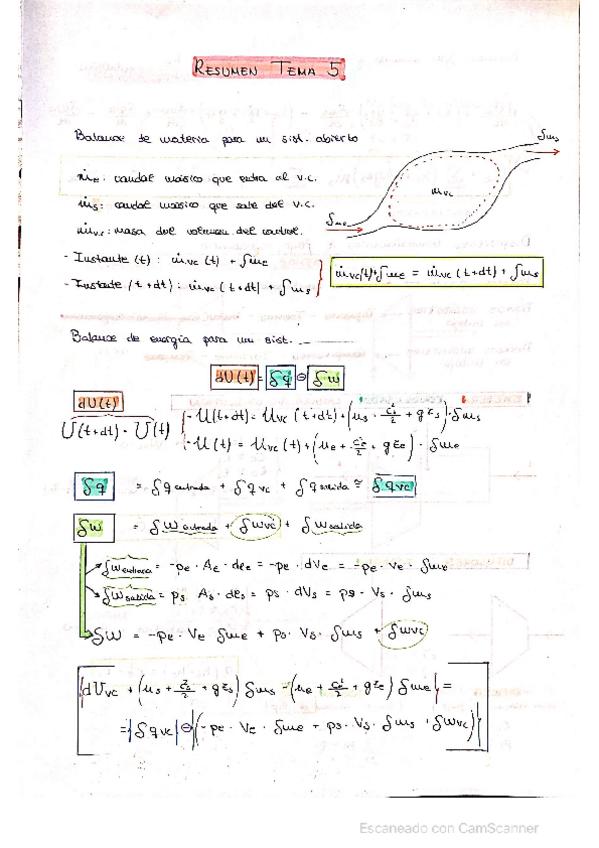 RESUMEN TEMA 5
Balance de materia para un sist. abierto
δms
ṁe: caudal másico que entra al v.c.
mvc
ṁs: caudal másico que sale del v.c.
δme
ṁvc: masa del volumen del control.
- Instante (t): ṁvc (t) + δme
- Instante (t+dt): ṁvc (t+dt) + δms
ṁvc(t)+δme = ṁvc (t+dt) + δms
Balance de energía para un sist.
dU(t) = δq ⊖ δw
dU(t)
U(t+dt) - U(t)
- U(t+dt) = Uvc (t+dt) + (us + cs²/2 + g zs) · δms
- U(t) = Uvc (t) + (ue + ce²/2 + g ze) · δme
δq = δq entrada + δqvc + δq salida ≅ δqvc
δw = δw entrada + δwvc + δw salida
δw entrada = -pe · Ae · dee = -pe · dVe = -pe · ve · δme
δw salida = ps As · des = ps · dVs = ps · vs · δms
δw = -pe · ve δme + ps · vs · δms + δwvc
dUvc + (us + cs²/2 + g zs) δms - (ue + ce²/2 + g ze) δme =
= δqvc ⊖ (-pe · ve · δme + ps · vs · δms + δwvc)
Escaneado con CamScanner